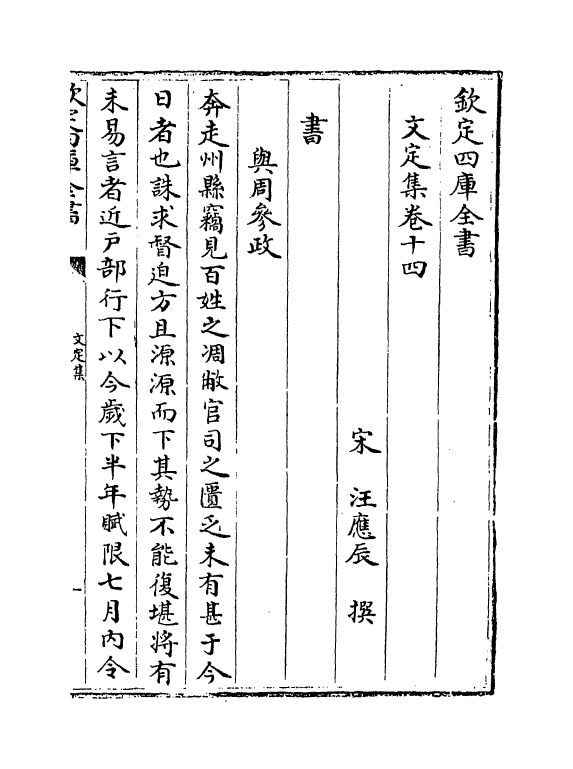 欽定四庫全書
文定集卷十四
宋 汪應辰 撰
書
與周參政
奔走州縣竊見百姓之凋敝官司之匱乏未有甚于今
日者也誅求督迫方且源源而下其勢不能復堪將有
未易言者近戸部行下以今歲下半年賦限七月內令
欽定四庫全書
文定集
一